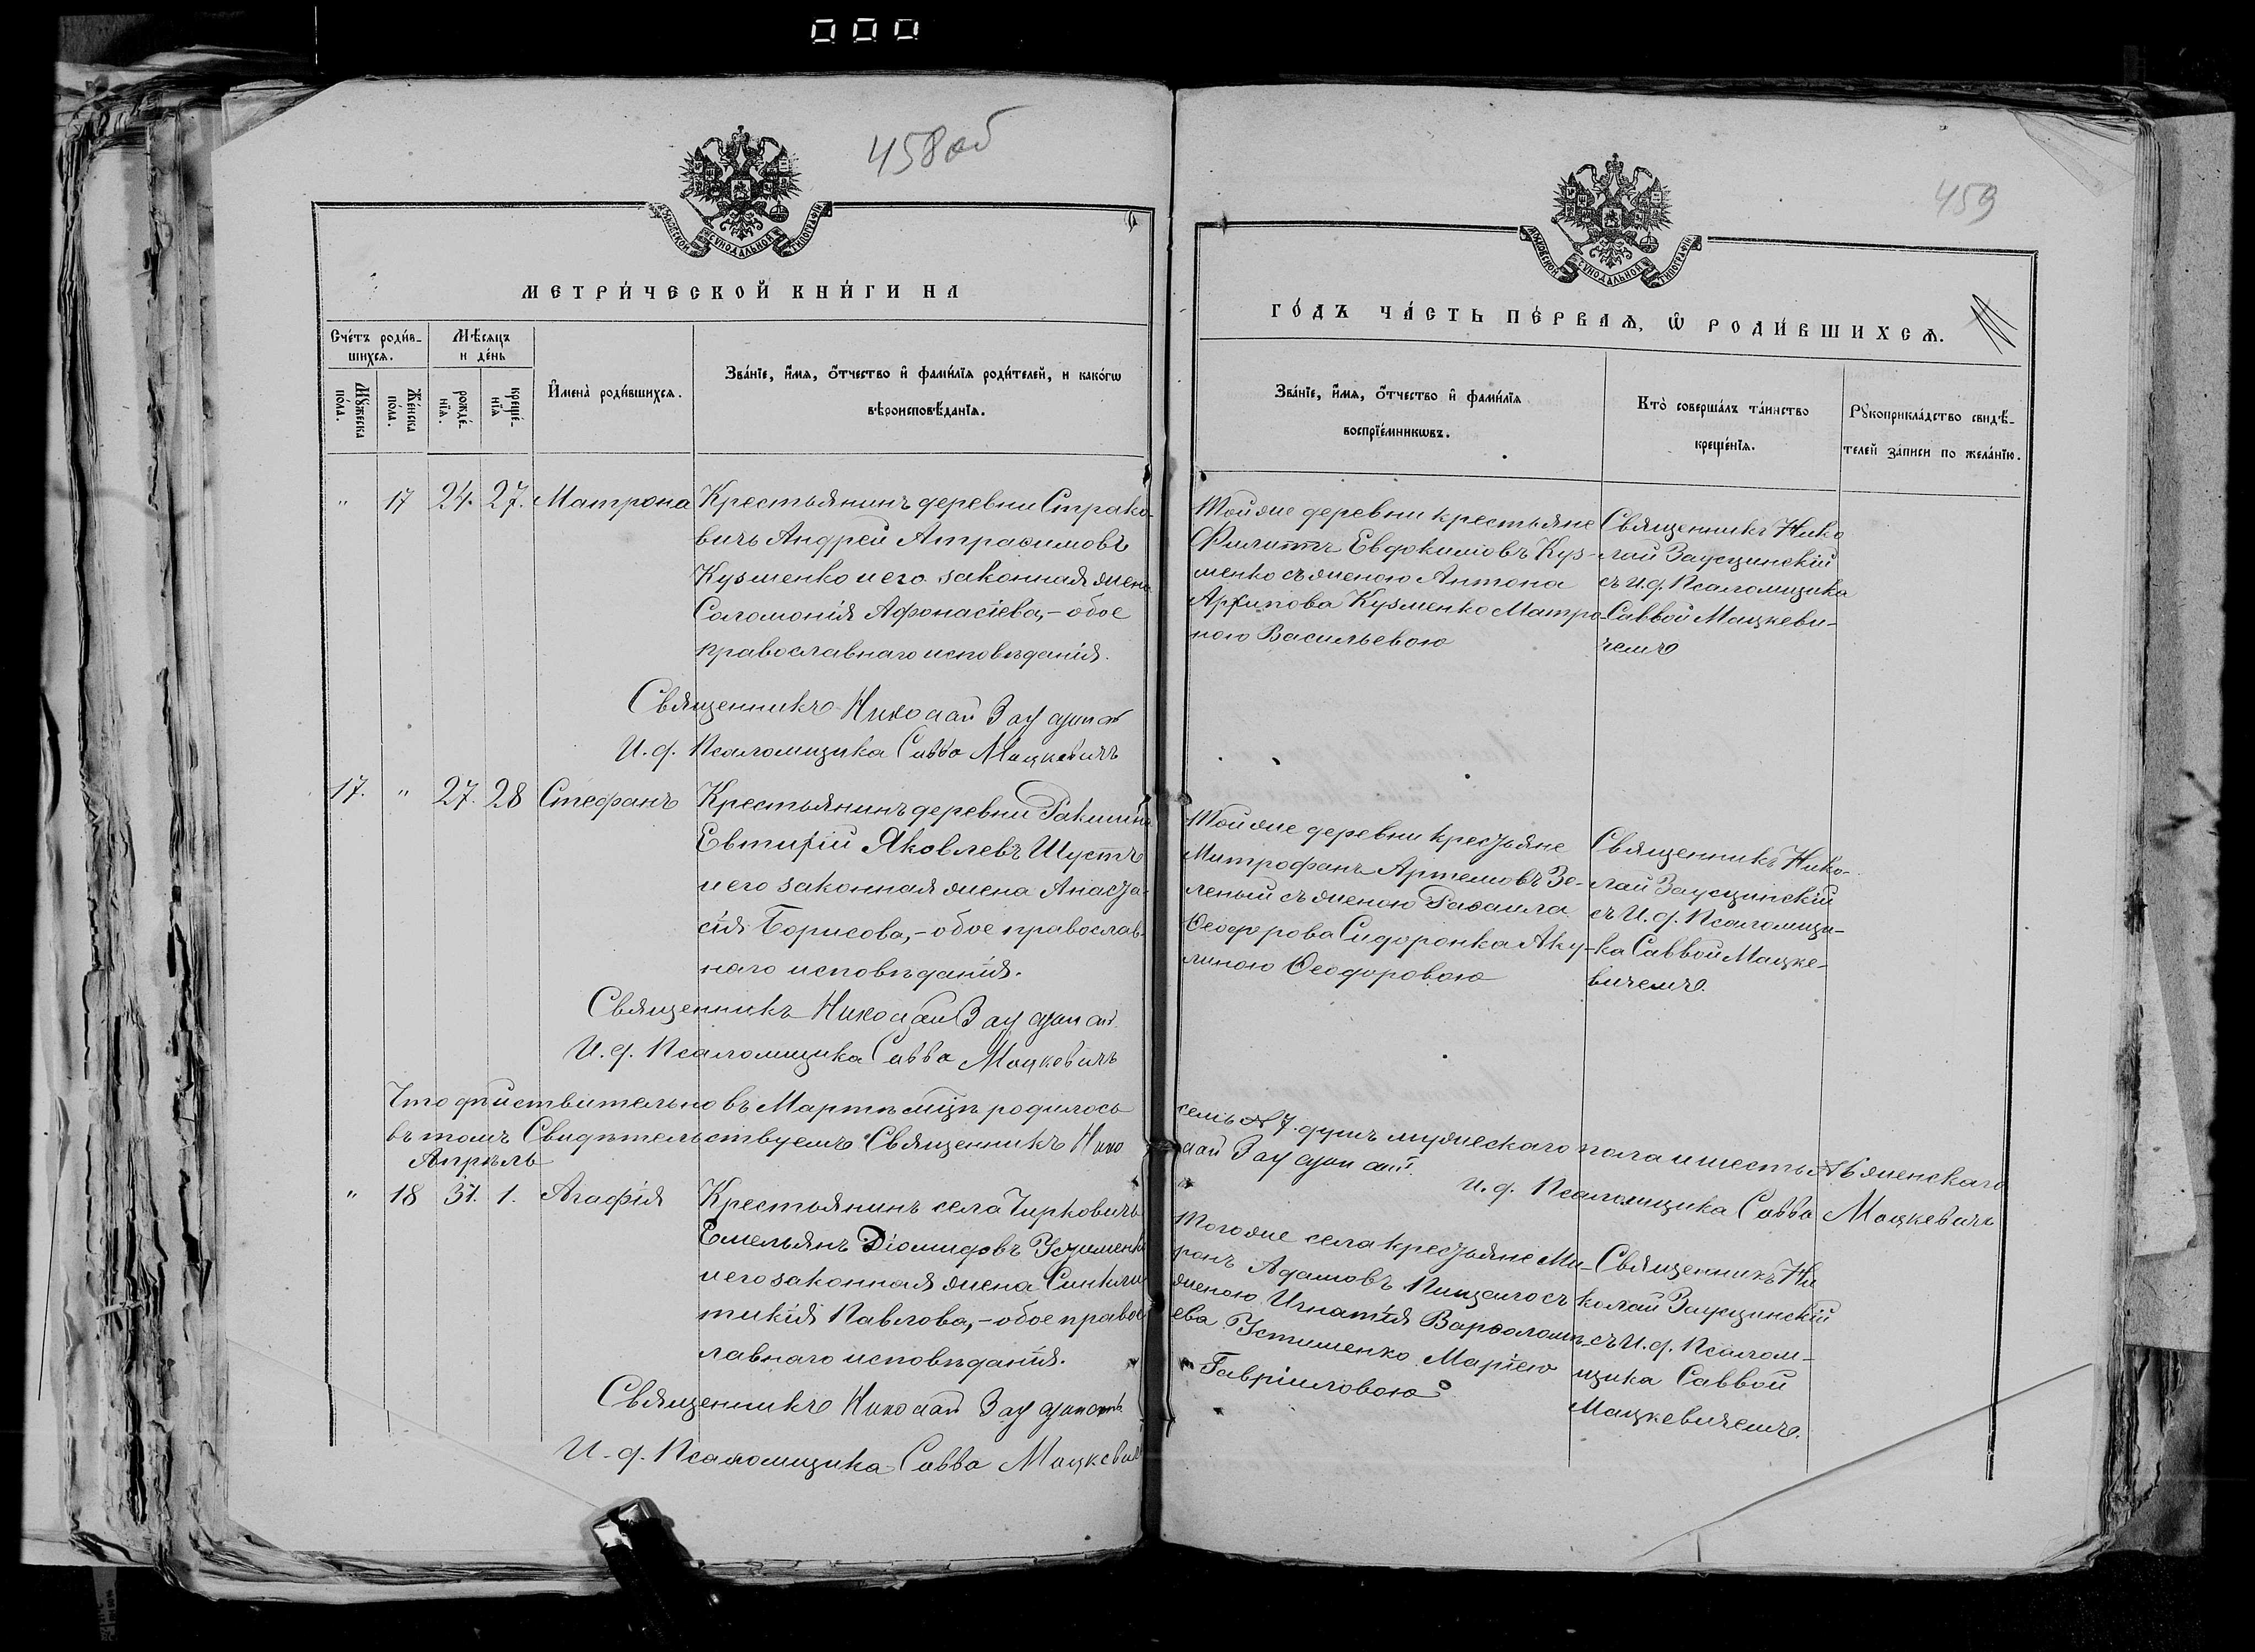 000
458об
МОСКОВСКОЙ СѴНОДАЛЬНОЙ ТИПОГРАФІИ
МЕТРИ́ЧЕСКОЙ КНИ́ГИ НА
Сче́тъ роди́в-
шихсѧ.
Мѣ́сѧцъ
и де́нь
Мꙋ́жеска
по́ла.
Же́нска
по́ла.
рожде́-
нїѧ.
креще́-
нїѧ
И҆мена̀ роди́вшихсѧ.
Зва́нїе, и҆́мѧ, ѻ҆́тчество и҆ фами́лїѧ роди́телей, и како́гѡ
вѣроисповѣ́данїѧ.
" 17 24. 27. Матрона
Крестьянинъ деревни Страко-
вичь Андрей Атрасимовъ
Кузменко и его законная жена
Саломонія Афонасіева,- обое
православнаго исповѣданія.
Священникъ Николай
И. д. Псаломщика Савва Мацкевичъ
17. " 27. 28 Стефанъ
Крестьянинъ деревни
Евтихій Яковлевъ Шустъ
и его законная жена Анаста-
сія Борисова,- обое православ-
наго исповѣданія.
Священникъ Николай
И. д. Псаломщика Савва Мацкевичъ
Что дѣйствительно въ Мартѣ мцѣ родилось
въ томъ Свидѣтельствуемъ Священникъ Нико
Апрѣль
" 18 31. 1. Агафія
Крестьянинъ села Чирковичь
Емельянъ Діомидовъ Устименко
и его законная жена Синкли-
тикія Павлова,- обое правос-
лавнаго исповѣданія.
Священникъ Николай
И. д. Псаломщика Савва Мацкевичъ
459
МОСКОВСКОЙ СѴНОДАЛЬНОЙ ТИПОГРАФІИ
ГО́ДЪ ЧА́СТЬ ПЕ́РВАѦ, Ѡ҆ РОДИ́ВШИХСѦ.
Зва́нїе, и҆́мѧ, ѻ҆́тчество и҆ фами́лїѧ
воспрїе́мникѡвъ.
Кто̀ соверша́лъ та́инство
креще́нїѧ.
Рꙋкоприкла́дство свидѣ́-
телей за́писи по жела́нїю.
Той же деревни крестьяне
Филиппъ Евдокимовъ Куз-
менко съ женою Антона
Архипова Кузменко Матро-
ною Васильевою
Священникъ Нико
лай Заусцинскій
съ и.д. Псаломщика
Саввой Мацкеви-
чемъ
Той же деревни крестьяне
Митрофанъ Артемовъ Зе-
леный съ женою Рафаила
Ѳеодорова Сидоронка Аку-
линою Ѳеодоровою
Священникъ Нико-
лай Заусцинскій
съ И.д. Псаломщи-
ка Саввой Мацке-
вичемъ.
семь №7. душъ мужескаго пола и шесть №6 женскаго
лай
И. д. Псаломщика Савва Мацкевичъ
Того же села крестьяне Ми-
ронъ Адамовъ Пищало съ
женою Игнатія Варфоломѣ-
ева Устименко Маріею
Гавріиловою
Священникъ Ни
колай Заусцинскій
съ И.д. Псалом-
щика Саввой
Мацкевичемъ.